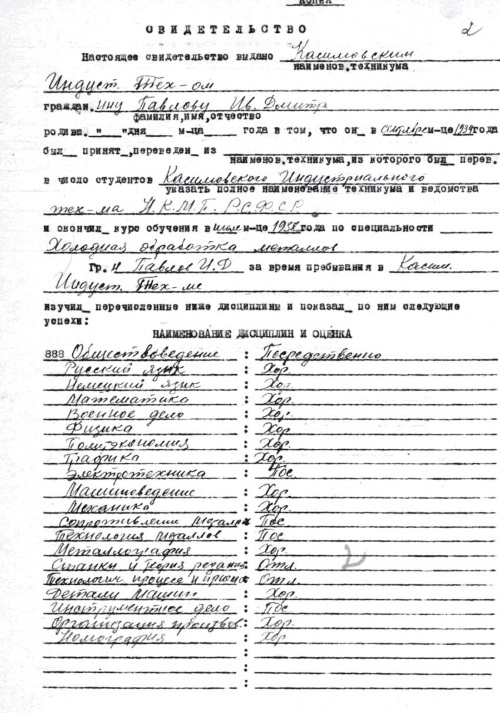 КОПИЯ
2
СВИДЕТЕЛЬСТВО
Настоящее свидетельство выдано Касимовским
наименов.техникума
Индуст. Тех-ом
граждан.ину Павлову Ив. Дмитр
фамилия,имя,отчество
родивш. " "дня м-ца года в том, что он в сентябрем-це 1934года
был принят,переведен из
наименов.техникума,из которого был перев.
в число студентов Касимовского Индустриального
указать полное наименование техникума и ведомства
тех-ма Н.К.М.П. Р.С.Ф.С.Р.
и окончил курс обучения в июлем-це 1938года по специальности
Холодная обработка металлов
Гр.н Павлов И.Д за время пребывания в Касим.
Индуст. Тех-ме
изучил перечисленные ниже дисциплины и показал по ним следующие
успехи:
НАИМЕНОВАНИЕ ДИСЦИПЛИН И ОЦЕНКА
888 Обществоведение : Посредственно
Русский язык : Хор.
Немецкий язик : Хор
Математика : Хор.
Военное дело : Хор.
Физика : Хор
Политэкономия : Хор.
Графика : Хор.
Электротехника : Пос.
Машиноведение : Хор.
Механика : Хор.
Сопротивлении металл : Пос
Технология металлов : Пос
Металлография : Хор.
Станки и теория резания : Отл.
Технология процесса и : Отл.
Детали Машин : Хор.
Инструментное дело : Пос
Организация произвов : Хор.
Номография : Хор